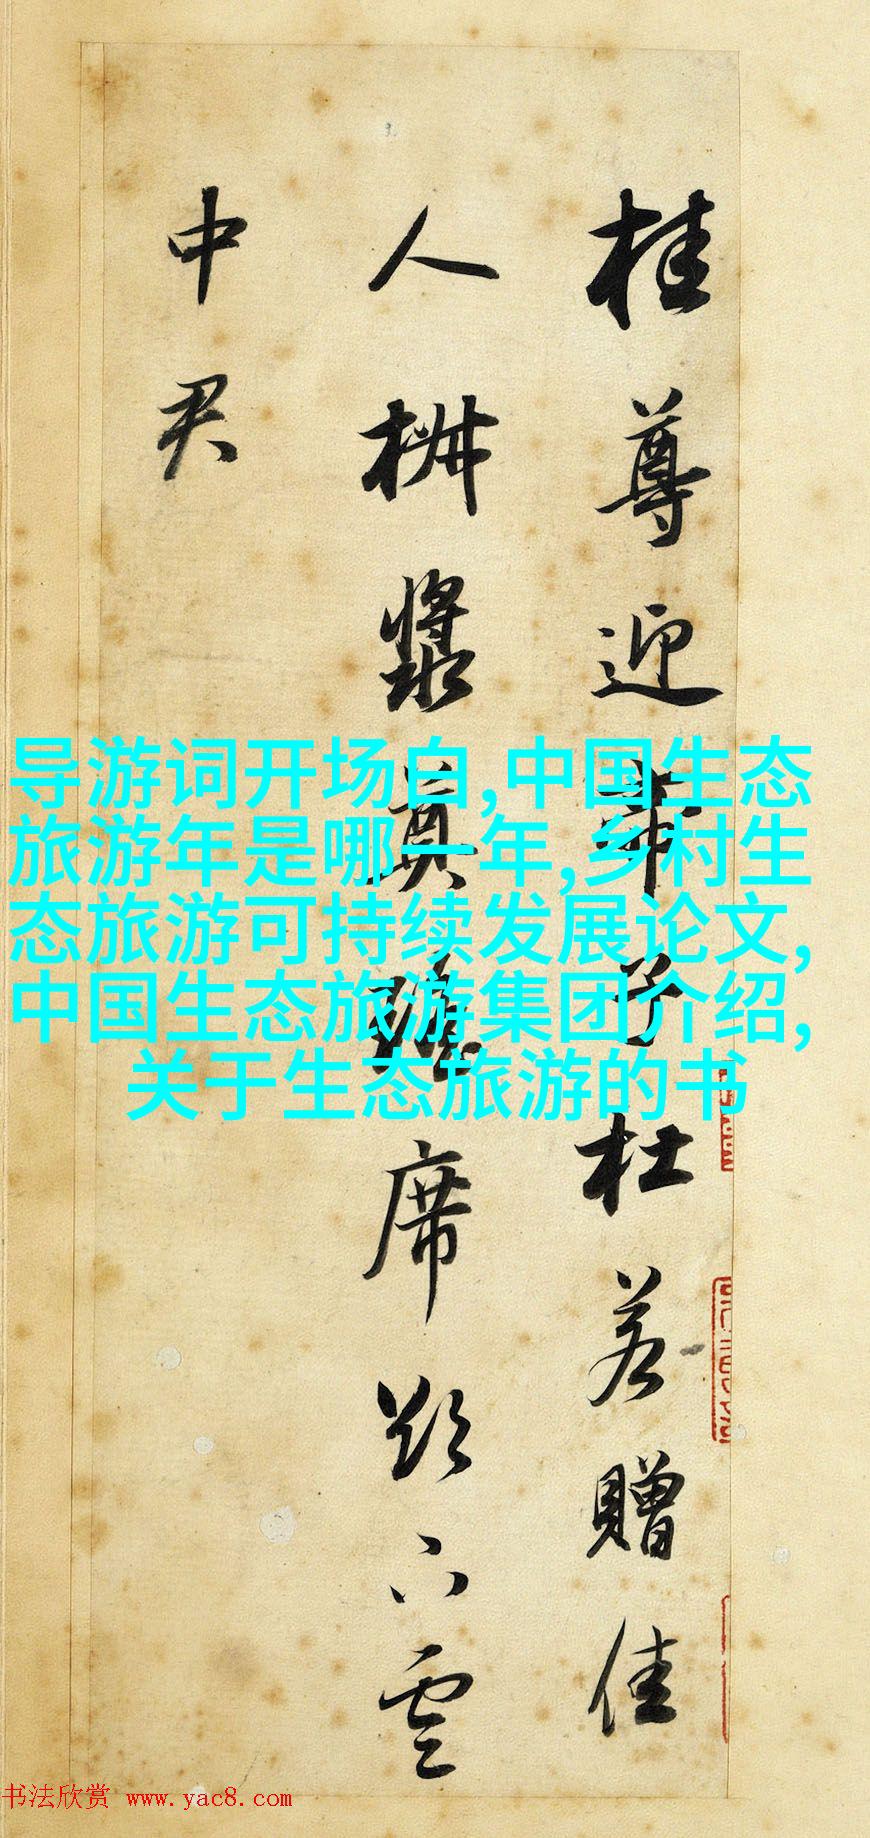 桂尊迎帝子杜若贈佳
人椒漿奠瑤席欲下雲
中君
导游词开场白,中国生态
旅游年是哪一年,乡村生
态旅游可持续发展论文,
中国生态旅游集团介绍,
关于生态旅游的书
书法欣赏 www.yac8.com